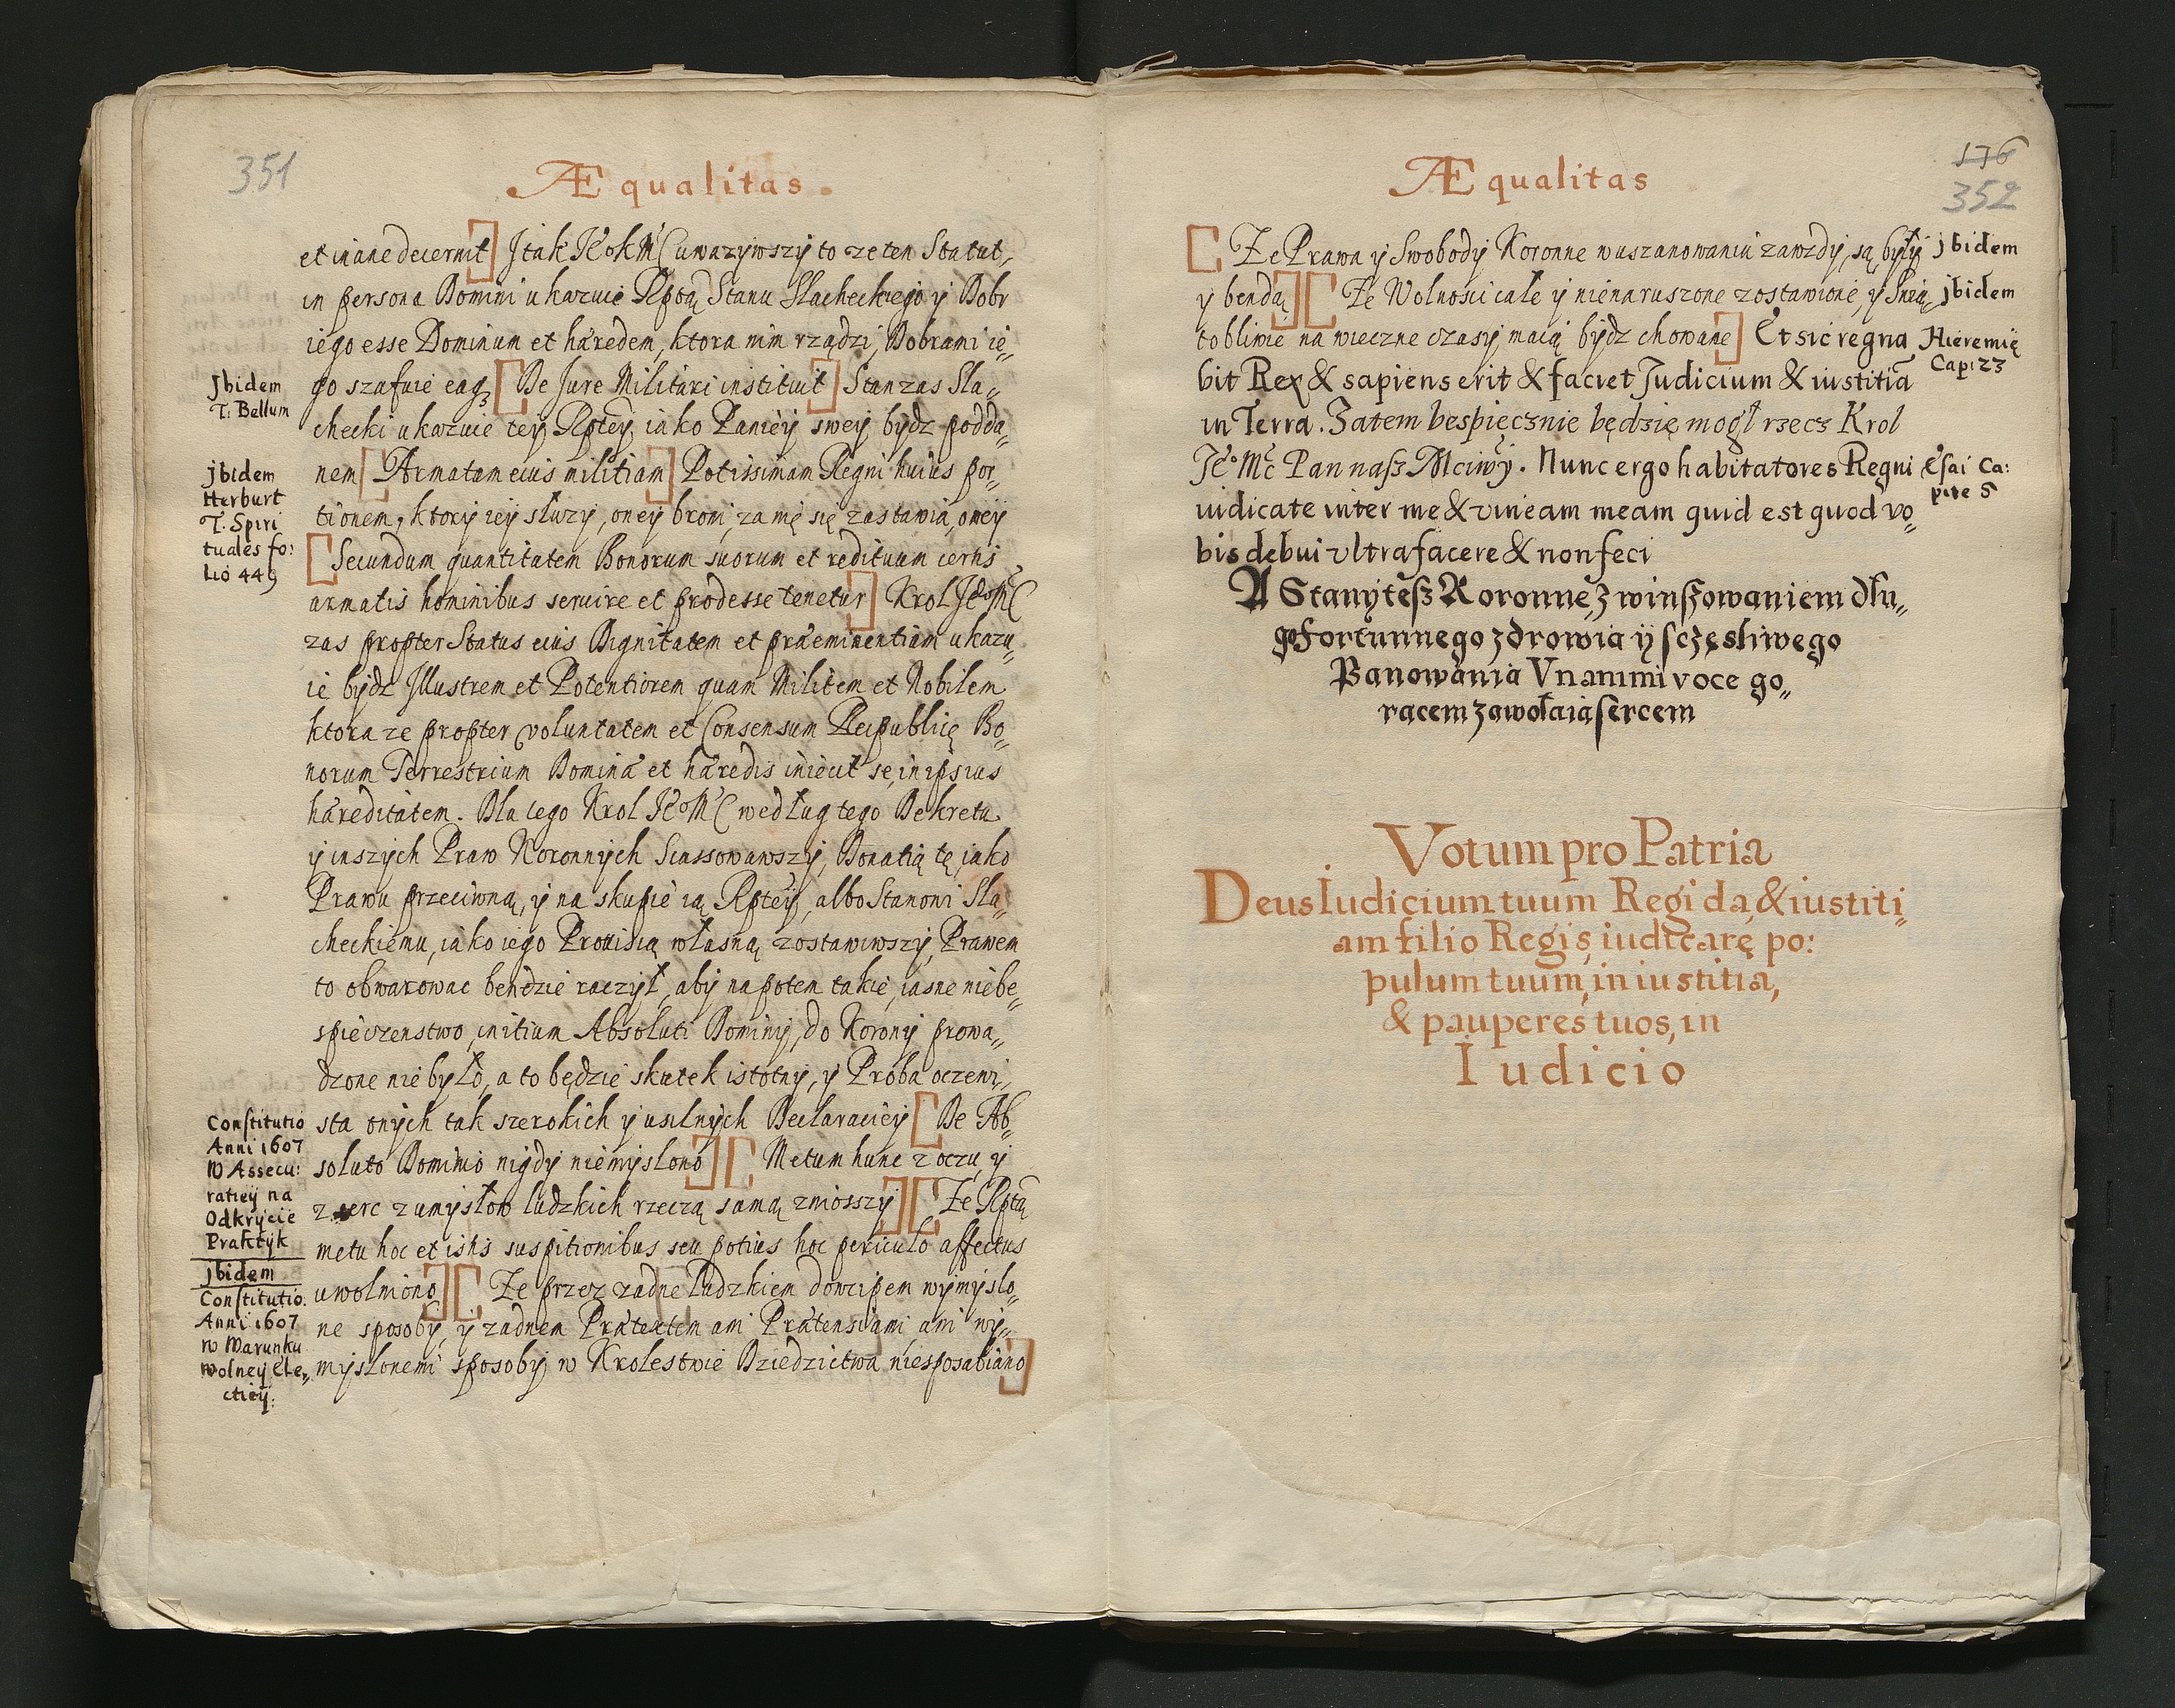 351
Æqualitas.
et inane decernit] Jtak JEokMC uwazywszy to ze ten Statut,
in persona Domini ukazuie Rptą Stanu Slacheckiego y Dobr
iego esse Dominum et hæredem, ktora nim rządzi, Dobrami ie„
go szafuie eaq3 [De Jure Militari instituit] Stan zas Sla„
checki ukazuie tey Rptey, iako Paniey swey bydz podda„
nem [Armatam eius militiam] Potissimam Regni huius por„
tionem, ktory iey słuzy, oney broni, za nię się zastawia, oney
[Secundum quantitatem Bonorum suorum et redituum certis
armatis hominibus seruire et prodesse tenetur] Krol JEoMC
zas propter Status eius Dignitatem et præeminentiam ukazu„
ie bydz Jllustrem et Potentiorem quam Militem et Nobilem
ktora ze propter voluntatem et Consensum Reipublicę Bo„
norum Terrestrium Domina et hæredis iniecit se, in ipsius
hæreditatem. Dla tego Krol JEoMC według tego Dekretu
y inszych Praw Koronnych Scassowawszy, Donatią tę, iako
Prawu przeciwną, y na skupie ią Rptey, albo Stanowi Sla„
checkiemu, iako iego Prouisią własną zostawiwszy, Prawem
to obwarowac bendzie raczył, aby napotem takie, iasne niebe„
spieczenstwo, initium Absoluti Dominy, do Korony prowa„
dzone nie było, a to będzie skutek istotny, y Proba oczewi„
sta onych tak szerokich y usilnych Declaraciey [De Ab„
soluto Dominio nigdy niemyslono] [Metum hunc z oczu, y
z serc z umysłow ludzkich rzeczą samą zniosszy] [Ze Rptą
metu hoc et istis suspitionibus seu potius hoc periculo affectus
uwolniono] [Ze przez zadne ludzkiem dowcipem wymyslo„
ne sposoby, y zadnem Prætextem ani Prætensiami, ani wy„
myslonemi sposoby w Krolestwie Dziedzictwa niesposabiano]
Jbidem
T. Bellum
jbidem
Herburt
T. Spiri
tuales fo:
lio 449
Constitutio
Anni 1607
W Assecu:
ratiey na
Odkrycie
Praktyk
jbidem
Constitutio.
Anni 1607
w Warunku
wolney Ele„
ctiey.
176
352
Æqualitas
[Ze Prawa y Swobody Koronne w uszanowaniu zawzdy, są, były
y bendą] [Ze Wolnosci całe y nienaruszone zostawione, y Swią„
tobliwie na wieczne czasy, maią bydz chowane] Et sic regna
bit Rex & sapiens erit & faciet Judicium & iustitiā
in Terra. Zatem bespięcznie będzię mogł rzecz Krol
JEoMc Pan nasz Mciwy. Nunc ergo habitatores Regni
iudicate inter me & vineam meam quid est quod vo„
bis debui vltra facere & non feci
A Stany tesz Koronne, z winszowaniem dłu„
go fortunnego zdrowia y sczęsliwego
Panowania Vnanimi voce go„
racem zawołaia sercem
jbidem
jbidem
Hieremię
Cap: 23
Esai Ca:
pite 5
Votum pro Patria
Deus Iudicium tuum Regi da, & iustiti„
am filio Regis, iudicarę po:
pulum tuum, in iustitia,
& pauperes tuos, in
Iudicio